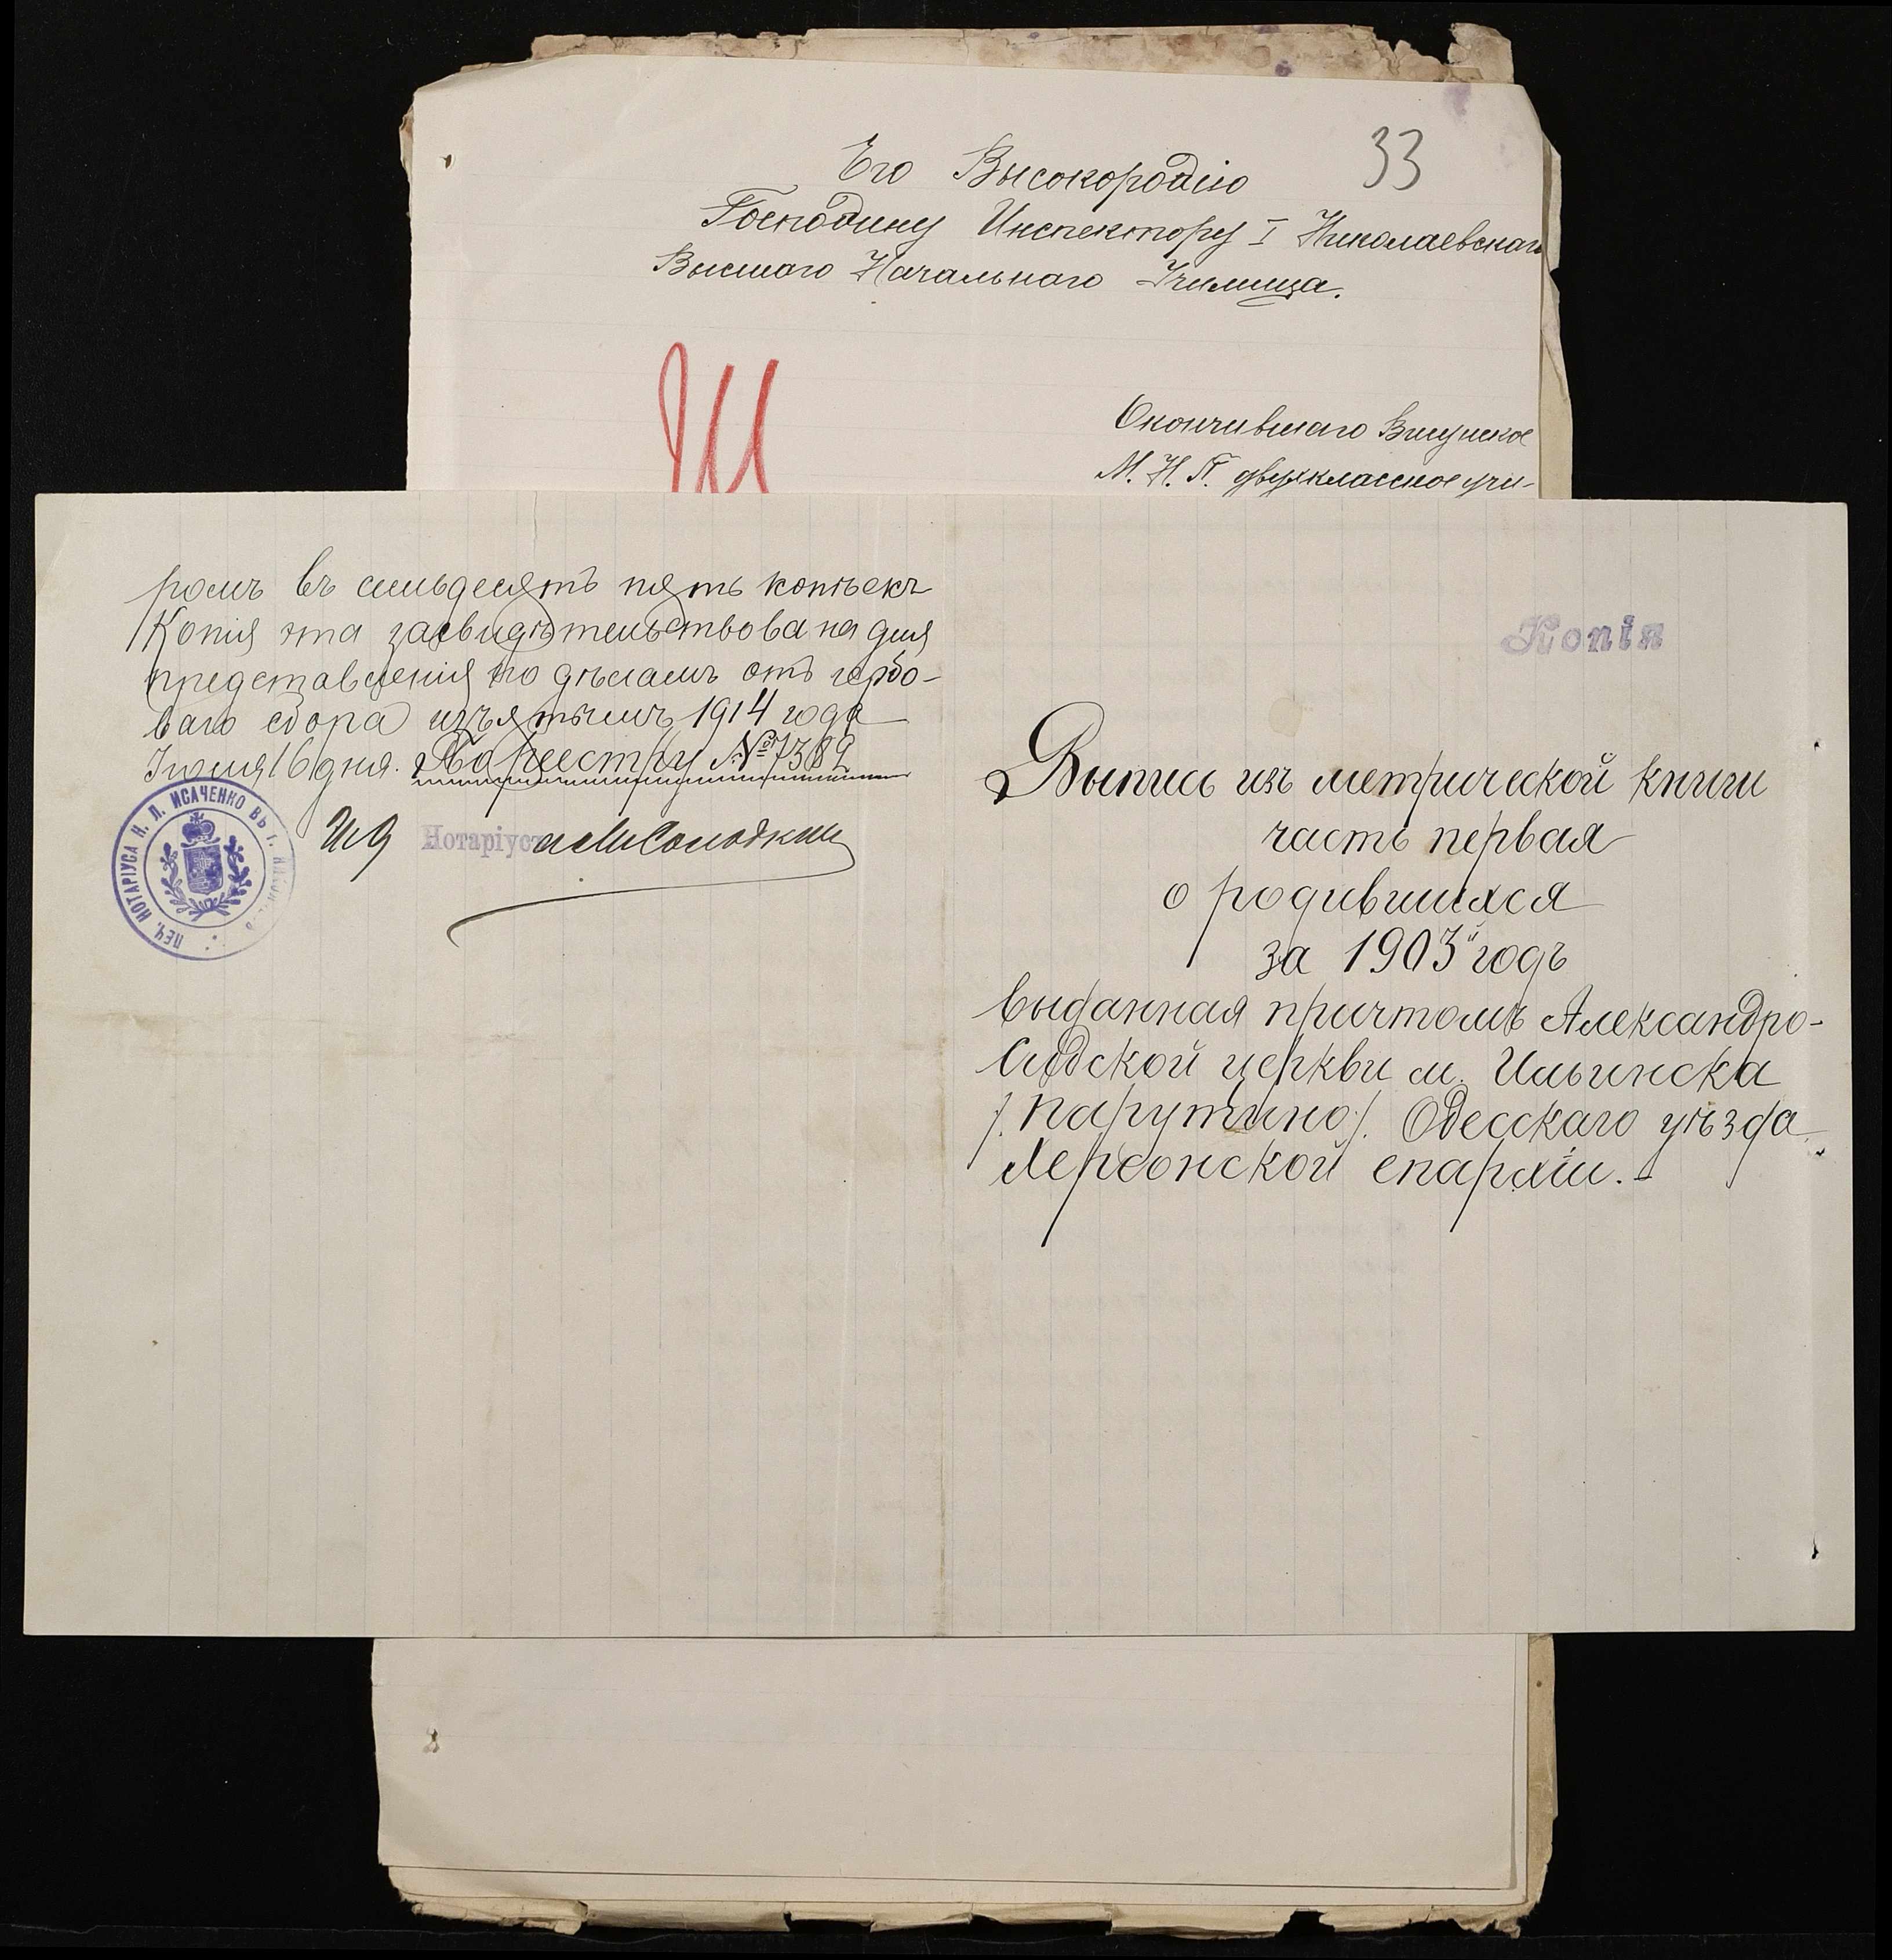 33
Его Высокородію
Господину Инспектору I Николаевскаго
Высшаго Начальнаго Училища.
Окончившаго
М. Н. П. двухклассное учи-
ромъ въ семьдесятъ пять копѣекъ
Копія эта засвидѣтельствована для
представленія по дѣламъ отъ гербо-
ваго сбора изъятымъ, 1914 года
16 дня. По реестру № 7382
ПЕЧ. НОТАРІУСА Н. Л. ИСАЧЕНКО ВЪ Г.
И д Нотаріуса
Копія
Выпись изъ метрической книги
часть первая
о родившихся
за 1903й годъ
выданная причтомъ Александро-
Невской церкви м. Ильинска
/. Парутино ./. Одесскаго уѣзда
Херсонской епархіи. –